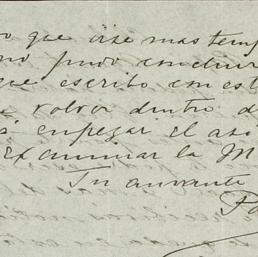 o que irse mas temp
no pudo concluir
que escribo con est
volver dentro d
empezar el as
Examinar la M
Tu amante
Pa